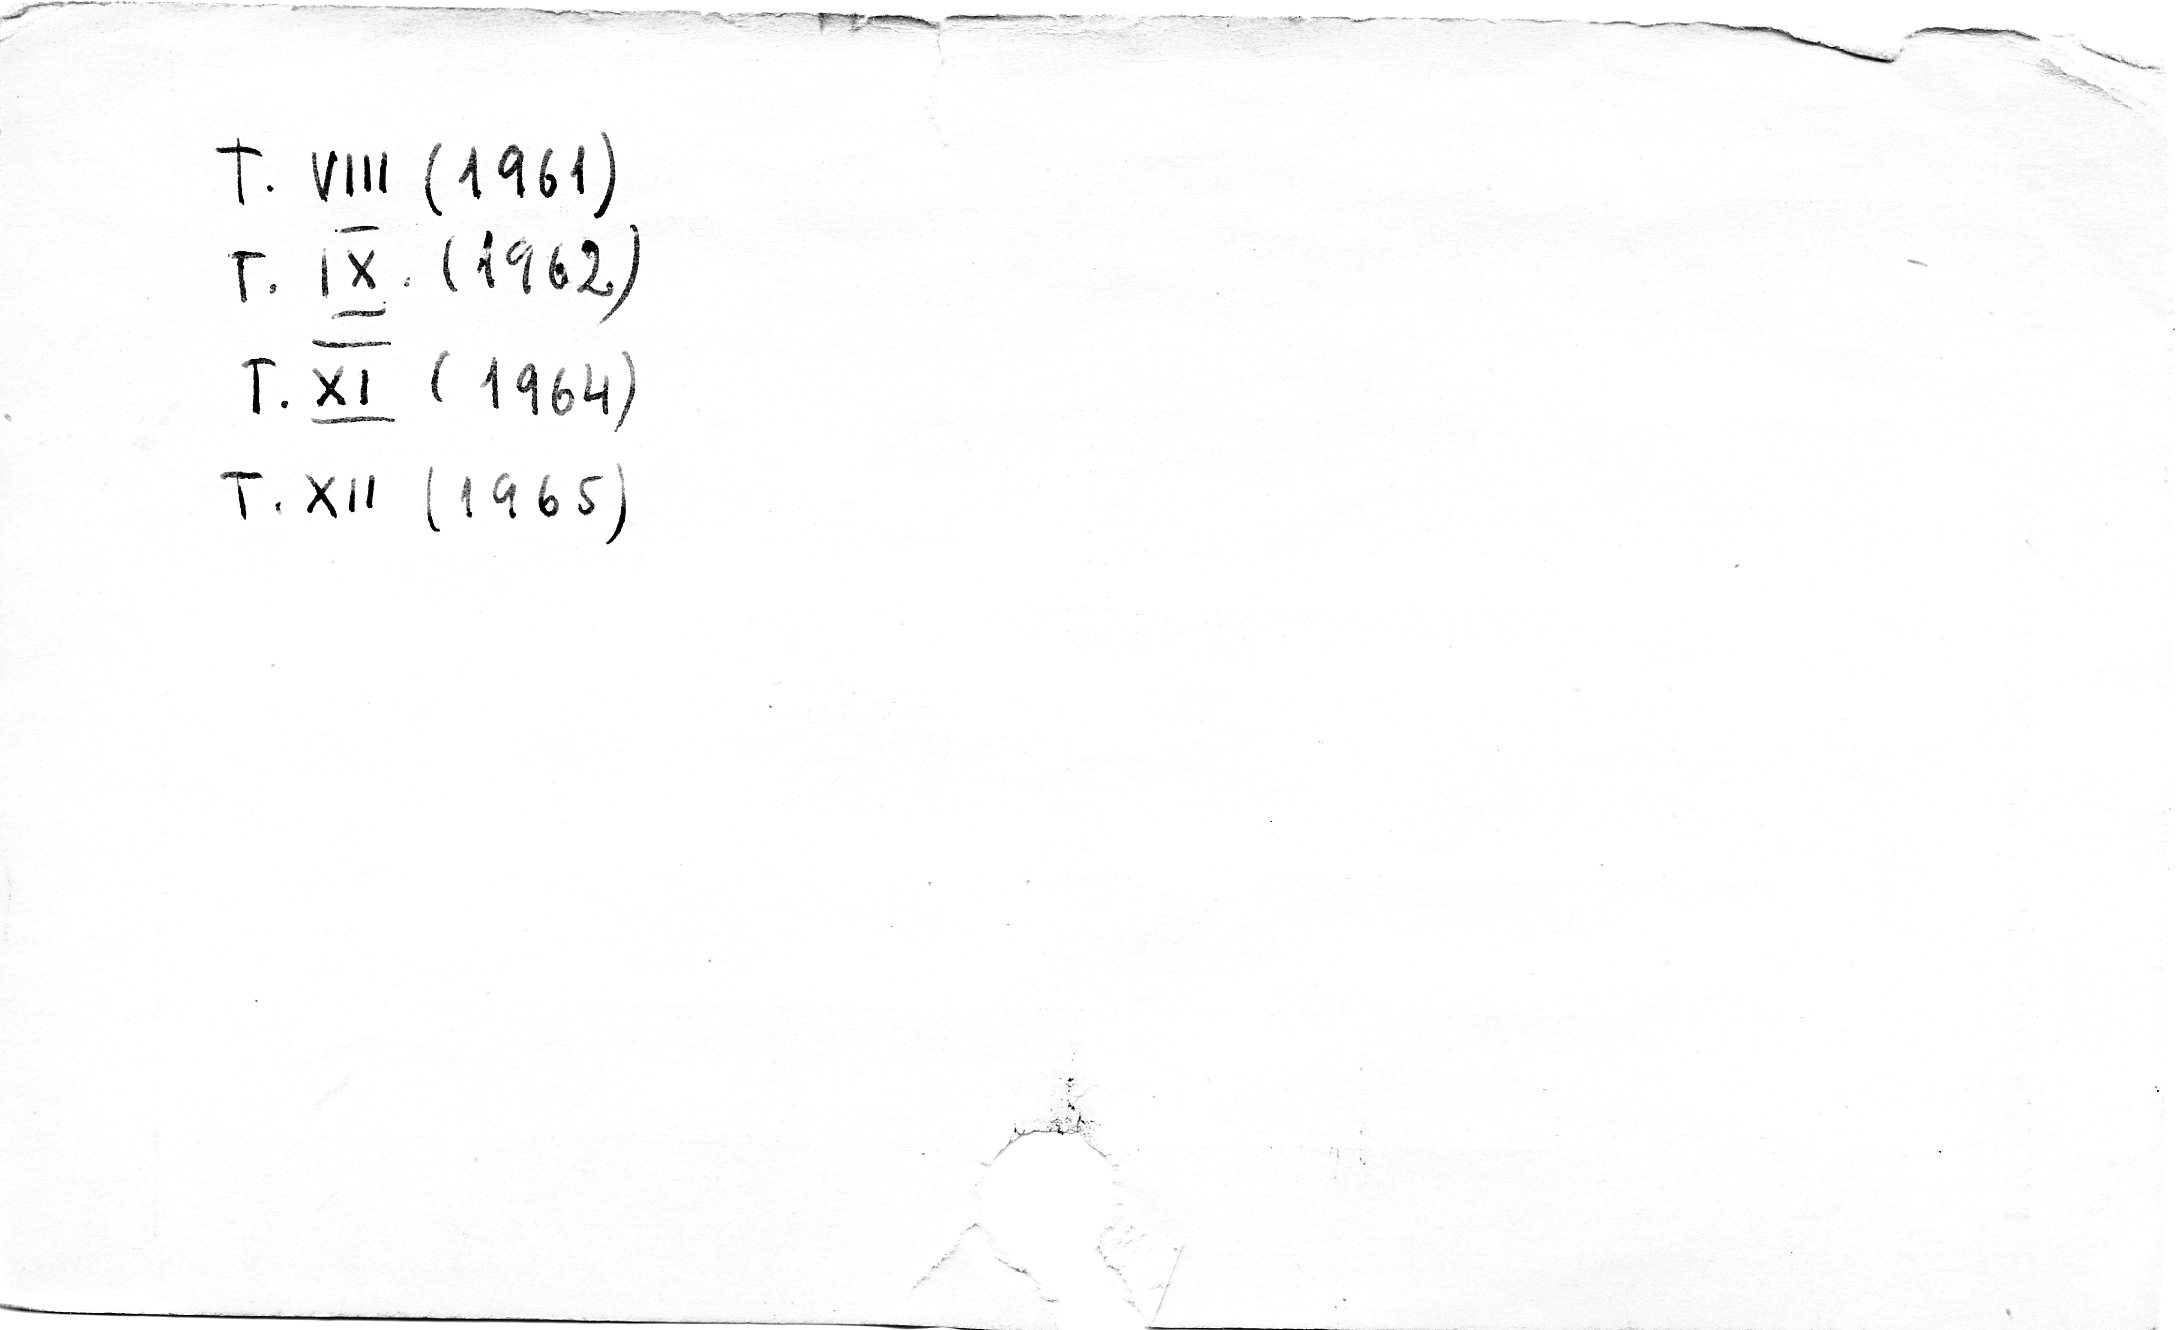 T. VIII (1961)
T. IX. (1962)
T. XI (1964)
T. XII (1965)